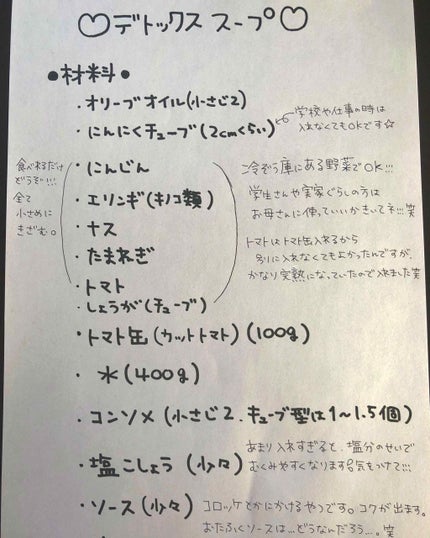 ♡デトックス スープ♡
●材料●
・オリーブオイル(小さじ2)
・にんにくチューブ(2cmくらい)
学校や仕事の時は
入れなくてもOKです☆
食べれるだけ
どうぞ!!!
全て
小さめに
きざむ。
・にんじん
・エリンギ(キノコ類)
・ナス
・たまねぎ
・トマト
・しょうが(チューブ)
冷ぞう庫にある野菜でOK!!!
学生さんや実家ぐらしの方は
お母さんに使っていいかきいてネ!!!笑
トマトはトマト缶入れるから
別に入れなくてもよかったんですが、
かなり完熟になっていたので入れました笑
・トマト缶(カットトマト)(100g)
・水(400g)
・コンソメ(小さじ2、キューブ型は1〜1.5個)
・塩こしょう(少々)
あまり入れすぎると、塩分のせいで
むくみやすくなります 気をつけて!!!
・ソース(少々)
コロッケとかにかけるやつです。コクが出ます。
おたふくソースは…どうなんだろう…。笑